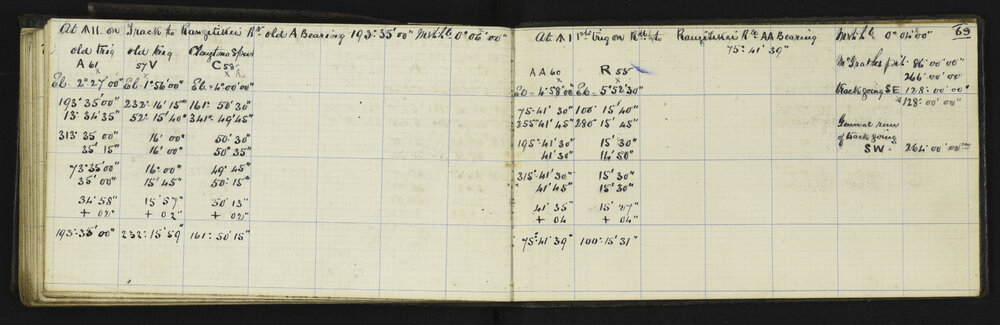 At ↑ 11. on Track to Rangitikei Rr. old A Bearing 193°. 35' 00"
old trig old trig
A 61 57 V C 58
El= 2° 27' 00" El= 1° 56' 00" El= 4° 00' 00"
193° 35' 00" 232° 16' 15" 161° 50' 30"
13° 34' 35" 52° 15' 40" 341° 49' 45"
313° 35' 00" 16' 00" 50' 30"
35' 15" 16' 00" 50' 35"
73° 35' 00" 16' 00" 49' 45"
35' 00" 15' 45" 50' 15"
34' 58" 15' 57" 50' 13"
+ 02" + 02" + 02"
193° 35' 00" 232° 15' 59" 161° 50' 15"
69
At ↑ 1 trig on Rangitikei Rr AA Bearing 0° 04' 00"
75° 41' 39"
AA 60 R 55
El= 4° 58' 00" El= 5° 52' 30"
75° 41' 30" 100° 15' 40"
255° 41' 45" 280° 15' 45"
195° 41' 30" 15' 30"
41' 30" 14' 50"
315° 41' 30" 15' 30"
41' 45" 15' 30"
41' 35" 15' 27"
+ 04 + 04"
75° 41' 39" 100° 15' 31"
McGraths pit. 86° 00' 00"
266° 00' 00"
track going SE 128° 00' 00"
128° 00' 00"
General run
of track going
SW. 264° 00' 00"